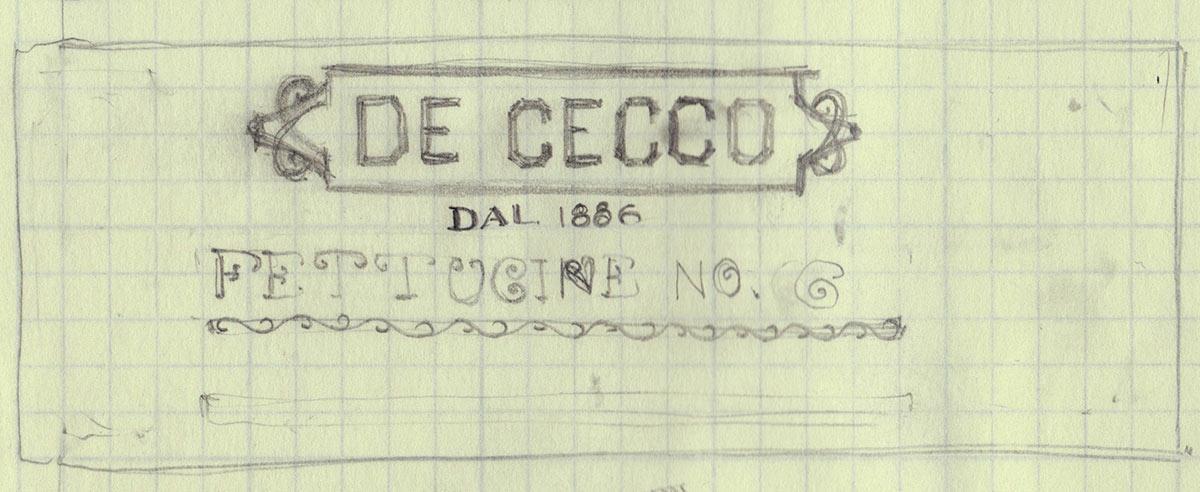 DE CECCO
DAL 1886
FETTUCINE NO. 6